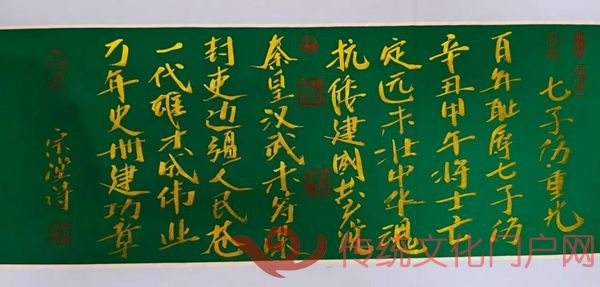 七子伤重光
百年耻辱七子伤
辛丑甲午将士亡
定远未壮中华魂
抗倭建国共产党
秦皇汉武
封吏边疆人民苍
一代雄才成伟业
万年史册建功章
宗 诗
传统文化门户网